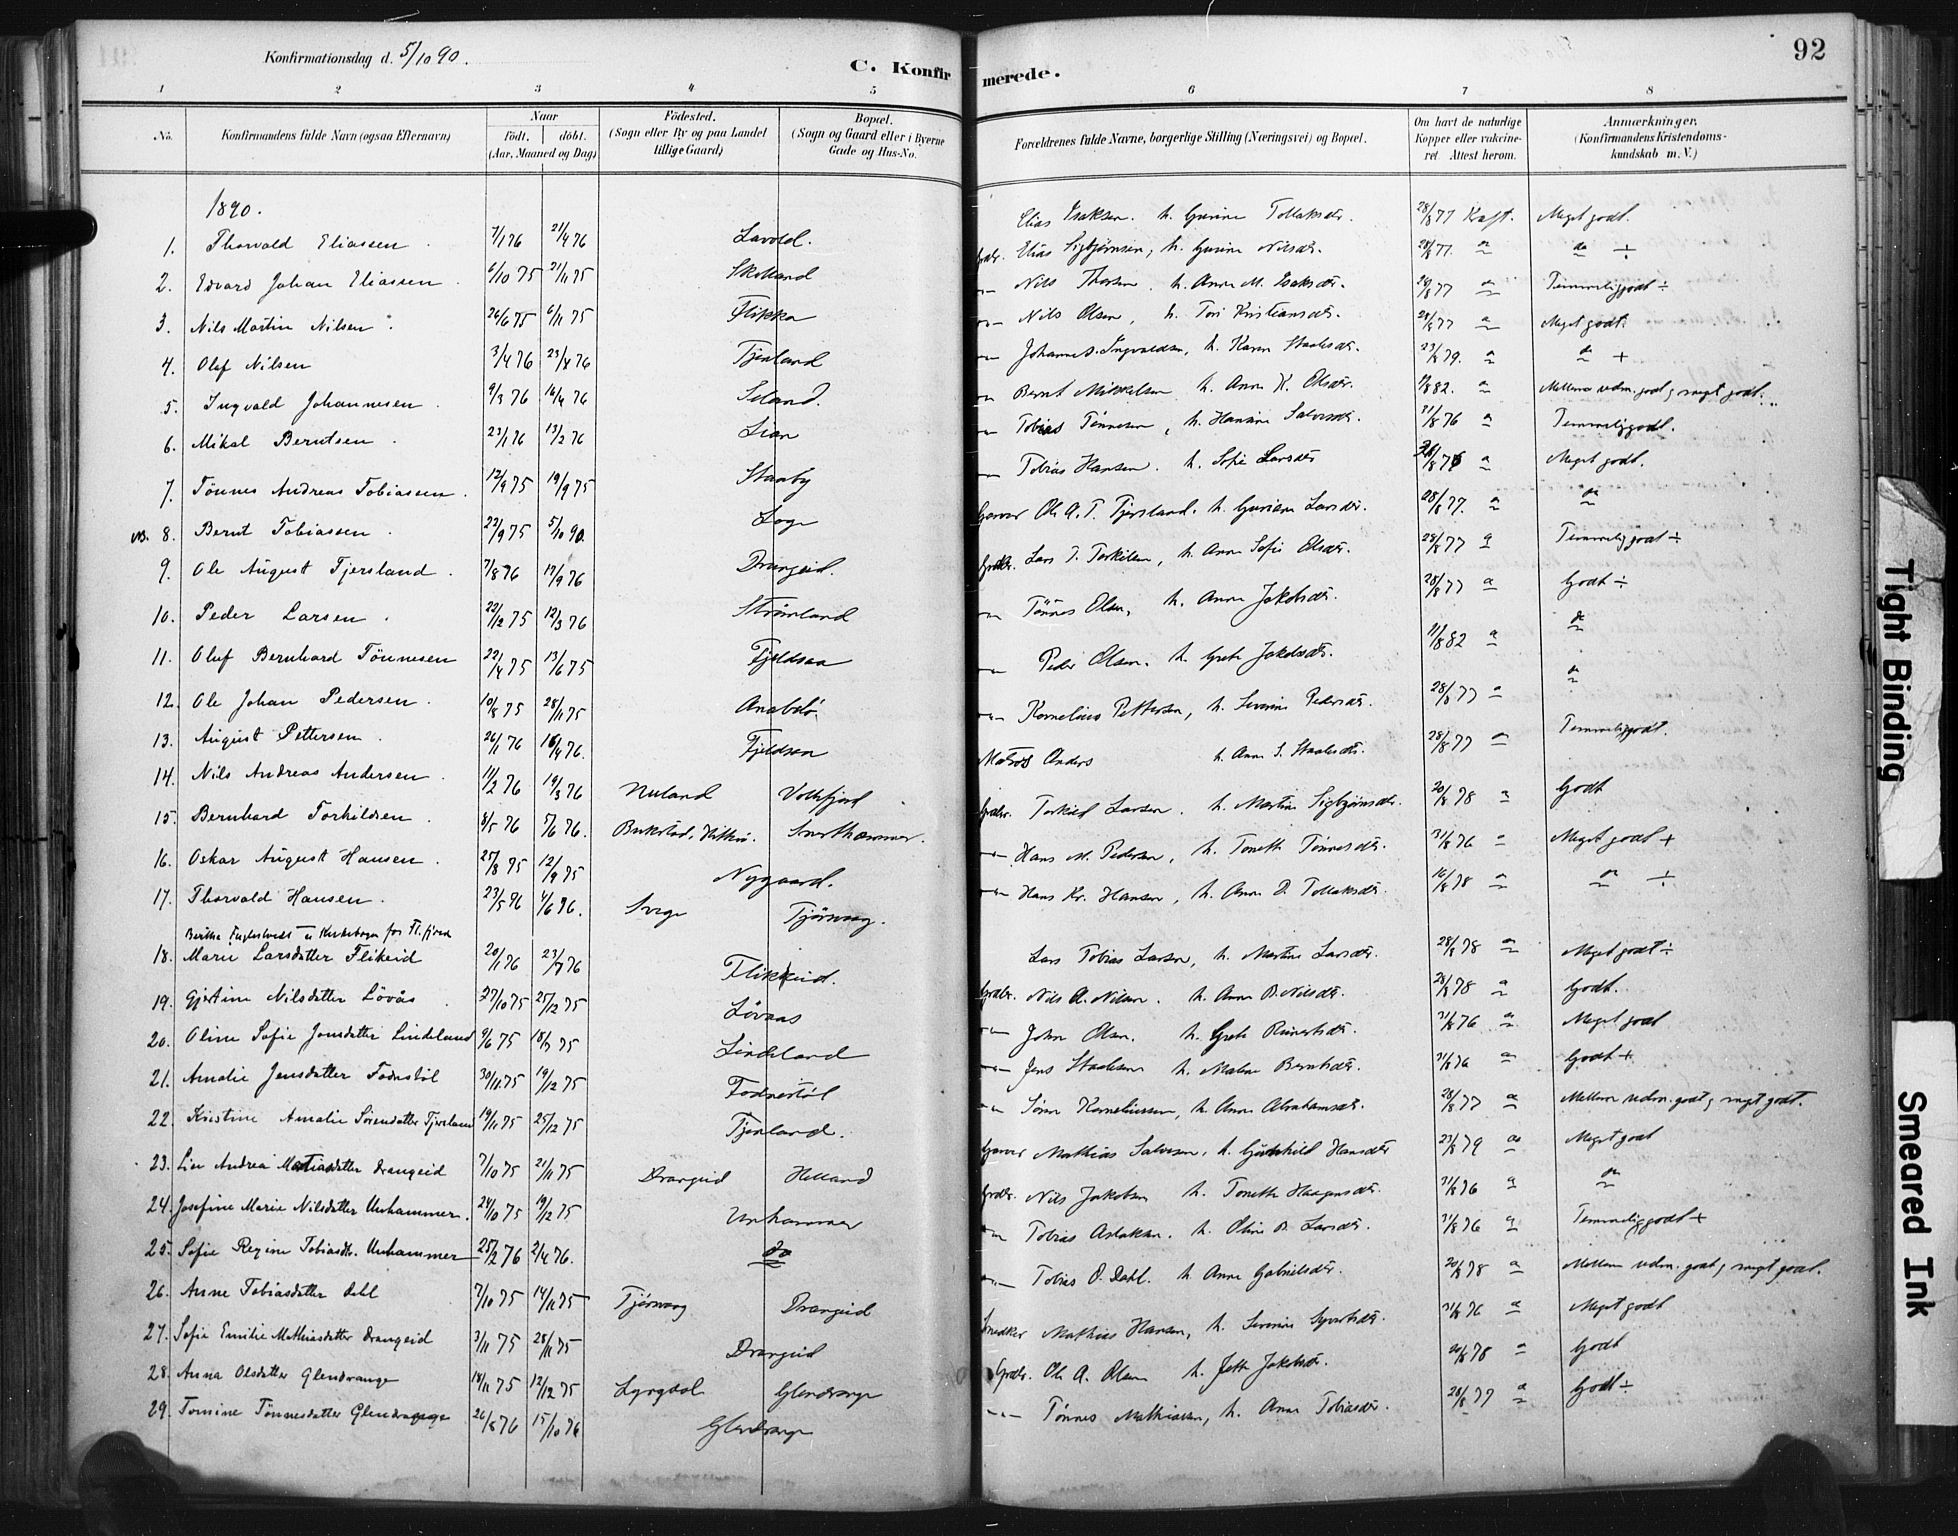 Konfirmationsdag d. 5/10 90.
C. Konfirmerede.
92
1 2 3 4 5 6 7 8
No. Konfirmandens fulde Navn (ogsaa Efternavn) Naar født, døbt. (Aar, Maaned og Dag) Fødested. (Sogn eller By og paa Landet tillige Gaard) Bopæl. (Sogn og Gaard eller i Byerne Gade og Hus-No. Forældrenes fulde Navne, borgerlige Stilling (Næringsvei) og Bopæl. Om havt de naturlige Kopper eller vakcineret. Attest herom. Anmærkninger. (Konfirmandens Kristendomskundskab m. V.)
1890.
1. Thorvald Eliassen 7/1 76 21/4 76 Lavold. Elias Isaksen. h. Gurine Tollaksdr. 28/8 77 Kraft. Meget godt.
2. Edvard Johan Eliassen 6/10 75 21/11 75 Skolland Gbdbr. Elias Sigbjørnsen, h. Gurine Nilsdtr. 28/8 77. do ÷
3. Nils Martin Nilsen 26/6 75 6/11 75 Flikka Nils Thorsen, h. Anne M. Isaksdtr. Temmelig godt ÷
4. Olaf Nilsen 3/4 76 23/4 76 Tjersland Nils Olsen, h. Tori Kristiansdtr. Meget godt.
5. Ingvald Johannesen 9/3 76 16/4 76 Seland. Johannes Ingvaldsen, h. Karen Staalesdtr. 23/8 79. do +
6. Mikal Berntsen 23/1 76 13/2 76 Lian Bernt Mikkelsen h. Anne K. Olsdtr. Mellem udm. godt & meget godt.
7. Tønnes Andreas Tobiassen 12/9 75 19/9 75 Staaby Tobias Tønnesen, h. Hansine Salvesdtr. 31/8 76 Temmelig godt.
NB. 8. Bernt Tobiassen 22/9 75 5/10 90. Loge Tobias Hansen. h. Sofie Larsdtr Meget godt.
9. Ole August Tjersland 7/8 76 17/9 76 Drangeid. Garver Ole A. T. Tjersland. h. Guriane Larsdtr. 28/8 77. do
10. Peder Larsen 22/12 75 12/3 76 Strømland Gbdbr. Lars T. Torkilsen, h. Anne Sofie Olsdtr. 28/8 77 Temmelig godt ÷
11. Oluf Bernhard Tønnesen 22/4 75 13/6 75 Fjeldsaa Tønnes Olsen, h. Anne Jakobsdtr. 28/8 77 Godt ÷
12. Ole Johan Pedersen 10/8 75 28/11 75 Anabelø. Peder Olsen. h. Grete Jakobsdtr. 11/8 82 do
13. August Pettersen 26/1 76 16/4 76. Fjeldsaa Kornelius Pettersen, h. Severine Pedersdtr. 28/8 77 do
14. Nils Andreas Andersen 11/2 76 19/3 76 Nuland Vollefjord Matros Anders h. Anne S. Staalesdtr. 28/8 77 Temmelig godt.
15. Bernhard Torkildsen 8/5 76 5/6 76. Birkeland, Hitterø. Snarthammer. Gbdbr. Torkild Larsen. h. Martine Sigbjørnsdtr. 20/8 78 Godt
16. Oskar August Hansen 25/8 75 12/9 75 Nygaard. Hans M. Pedersen, h. Tonette Tønnesdtr. 31/8 76 Meget godt +
17. Thorvald Hansen 23/5 76 4/6 76. Svege Tjørsvaag. Hans Kr. Hansen, h. Anne D. Tollaksdtr. 16/8 78 do ÷
Kirkebogen for Fl.fjord
18. Marie Larsdatter Flikeid 20/1 76 23/7 76 Flikkeid. Lars Tobias Larsen, h. Martine Larsdtr. 28/8 78 Meget godt ÷
19. Gjertine Nilsdatter Lövås 27/10 75 25/12 75 Løvaas Gbdbr. Nils A. Nilsen. h. Anne B. Nilsdtr. 28/8 78 Godt.
20. Oline Sofie Jonsdatter Lindeland 9/6 75 18/7 75 Lindeland John Olsen. h. Grete Reinertsdtr. 31/8 76 Meget godt
21. Amalie Jensdatter Fodnstöl 30/11 75 19/12 75 Fodnestöl Jens Staalesen h. Malene Berntsdtr. 31/8 76 Godt +
22. Kristine Amalie Sörensdatter Tjersland 19/11 75 25/12 75 Tjersland. Sören Korneliussen, h. Anne Abrahamsdtr. 28/8 77 Mellem udm. godt & meget godt.
23. Lise Andrea Matiasdatter Drangeid 7/10 75 21/11 75 Drangeid Helland Garver Mathias Salvesen, h. Gunhild Hansdtr 23/8 79 Meget godt
24. Josefine Marie Nilsdatter Unhammer. 24/10 75 19/12 75 Unhammer Gbdbr. Nils Jakobsen h. Tonette Haagensdtr. 31/8 76 do
25. Sofie Regine Tobiasdtr. Unhammer 25/2 76 2/4 76. do Tobias Aslaksen. h. Oline B. Larsdtr. 31/8 76 Temmelig godt +
26. Anne Tobiasdatter Dahl 7/10 75 14/11 75 Tjørsvaag Drangeid Tobias O. Dahl. h. Anne Gabrielsdtr. 20/8 78 Mellem udm. godt & meget godt.
27. Sofie Emilie Mathiasdatter Drangeid 3/11 75 28/11 75 Drangeid Snedker Mathias Hansen, h. Severine Syvertsdtr. 31/8 76 Meget godt
28. Anna Olsdatter Glendrange 18/11 75 12/12 75 Lyngdal Glendrange Gbdbr. Ole A. Olsen h. Jette Jakobsdtr. 20/8 78 Godt
29. Tomine Tönnesdatter Glendrange 26/8 76 15/10 76 Glendrange Tønnes Mathiassen, h. Anne Tobiasdtr. 28/8 77 Godt ÷
Tight Binding
Smeared Ink